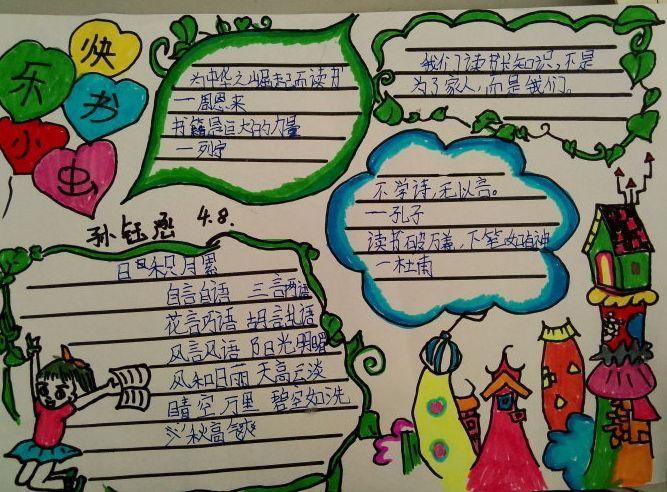 快
乐
书
小
虫
为中华之崛起而读书
—周恩来
书籍是巨大的力量
—列宁
我们读书长知识,不是
为了家人,而是我们。
不学诗,无以言。
—孔子
读书破万卷,下笔如有神
—杜甫
孙钰 4.8.
日积月累
自言自语 三言两语
花言巧语 胡言乱语
风言风语 阳光明媚
风和日丽 天高云淡
晴空万里 碧空如洗
秋高气爽